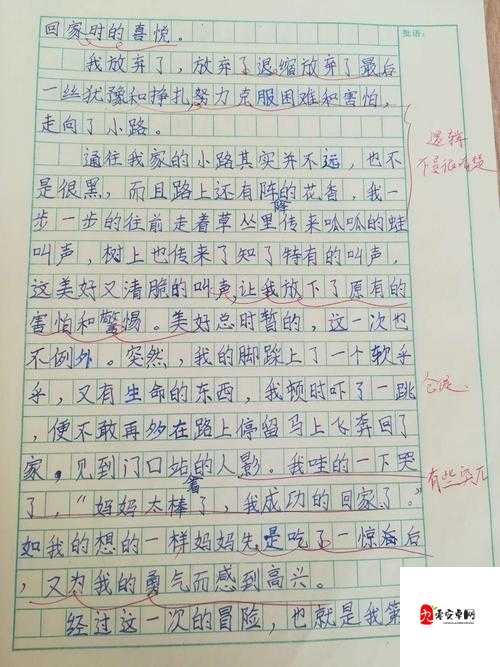 批语:
回家时的喜悦。
我放弃了,放弃了退缩放弃了最后
一丝犹豫和挣扎,努力克服困难和害怕,
走向了小路。
通往我家的小路其实并不远,也不
是很黑,而且路上还有阵阵的花香,我一
步一步的往前走着草丛里传来呱呱的蛙
叫声,树上也传来了知了特有的叫声,
这美好又清脆的叫声,让我放下了原有的
害怕和警惕。美好总时暂的,这一次也
不例外。突然,我的脚踩上了一个软乎
乎,又有生命的东西,我顿时吓了一跳
,便不敢再够在路上停留马上飞奔回了
家,见到门口站着的人影。我哇的一下哭
了,“妈妈太棒了,我成功的回家了。”
如我的想的一样妈妈先是吃了一惊后
,又为我的勇气而感到高兴。
经过这一次的冒险,也就是我第
逻辑
有些突兀
零安卓网